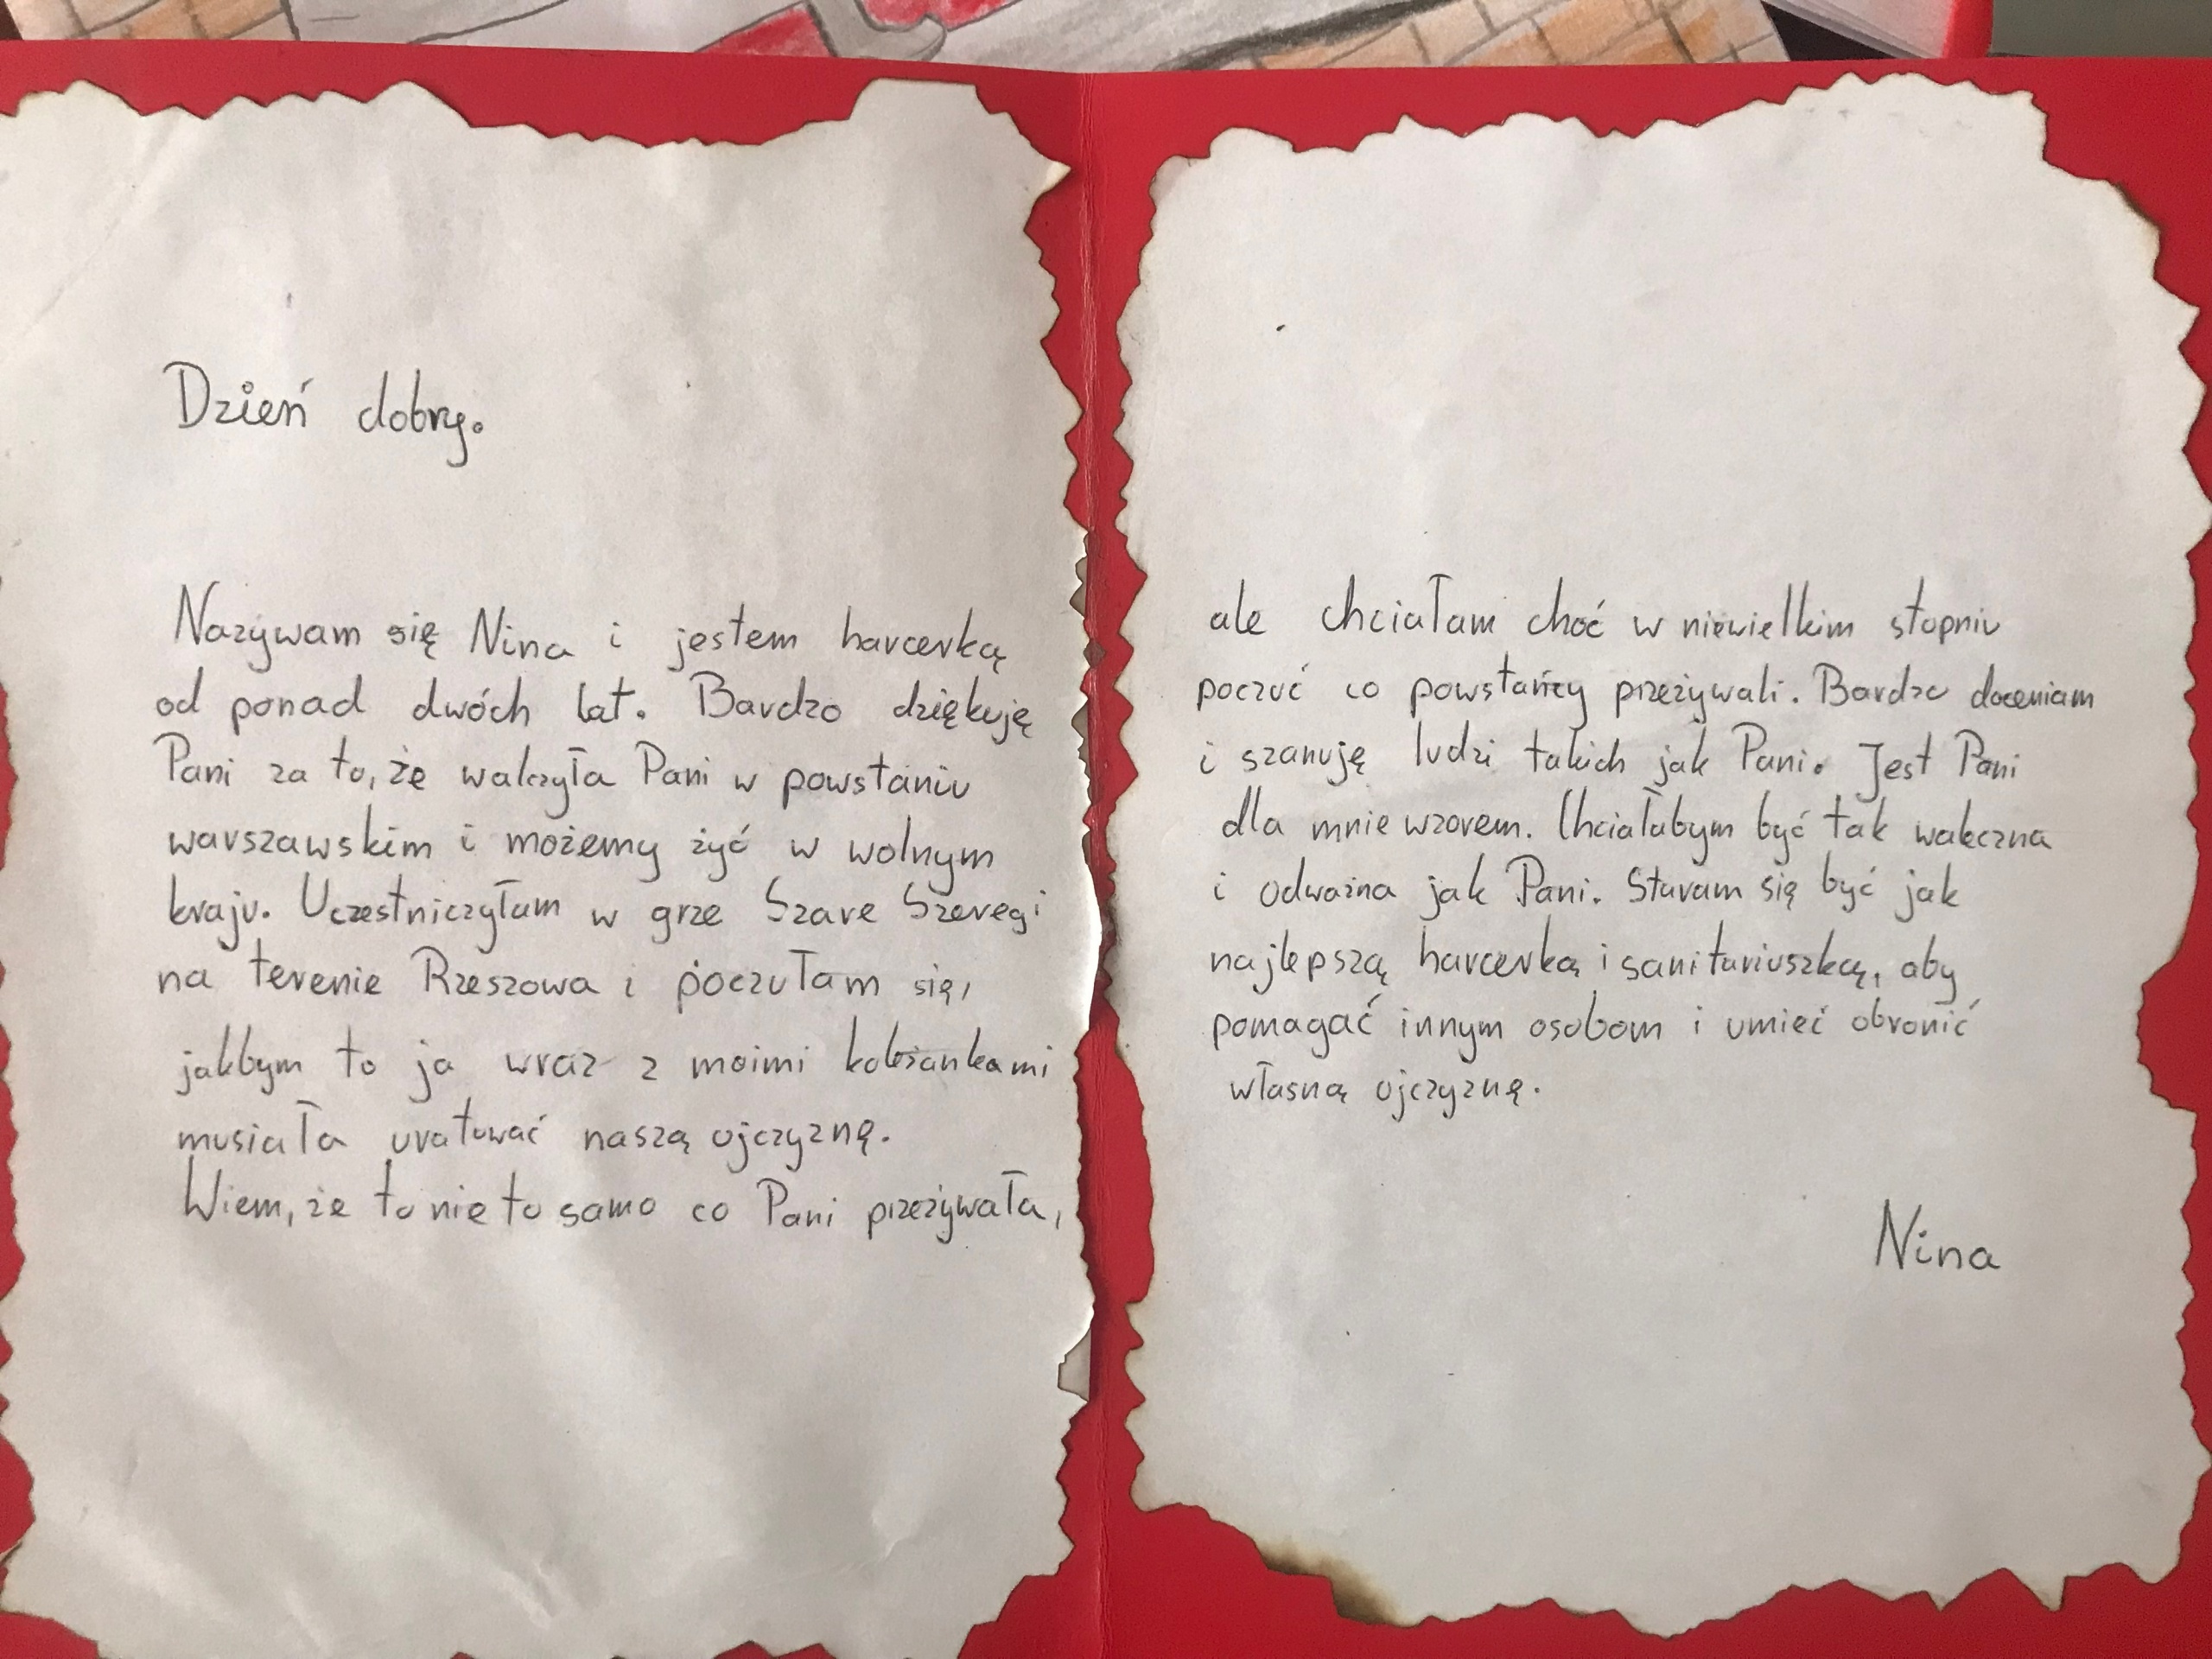 Dzień dobry.
Nazywam się Nina i jestem harcerką
od ponad dwóch lat. Bardzo dziękuję
Pani za to, że walczyła Pani w powstaniu
warszawskim i możemy żyć w wolnym
kraju. Uczestniczyłam w grze Szare Szeregi
na terenie Rzeszowa i poczułam się,
jakbym to ja wraz z moimi koleżankami
musiała uratować naszą ojczyznę.
Wiem, że to nie to samo co Pani przeżywała,
ale chciałam choć w niewielkim stopniu
poczuć co powstańcy przeżywali. Bardzo doceniam
i szanuję ludzi takich jak Pani. Jest Pani
dla mnie wzorem. Chciałabym być tak waleczna
i odważna jak Pani. Staram się być jak
najlepszą harcerką i sanitariuszką, aby
pomagać innym osobom i umieć obronić
własną ojczyznę.
Nina